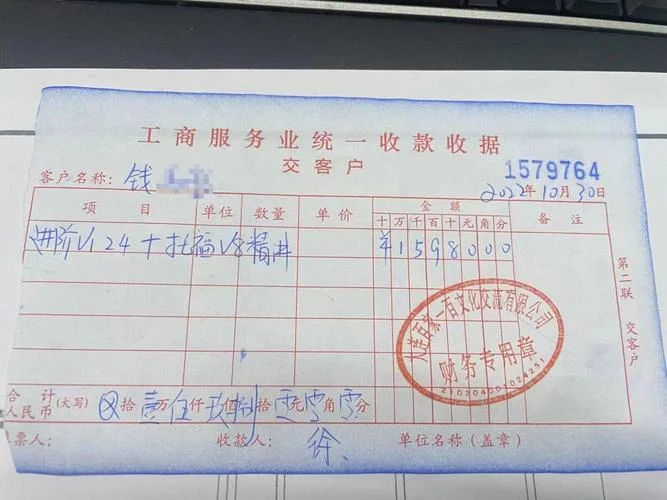 工商服务业统一收款收据
交客户
1579764
客户名称: 钱
2022年10月30日
项目 单位 数量 单价 金额 备注
十 万 千 百 十 元 角 分
进阶V124+托福V8精讲 ¥1598000
第二联 交客户
大连百家一百文化交流有限公司
财务专用章
2102040024251
合计
人民币 (大写) ⊗拾壹万伍仟玖佰捌拾零元零角零分
票人: 收款人: 徐 单位名称(盖章)